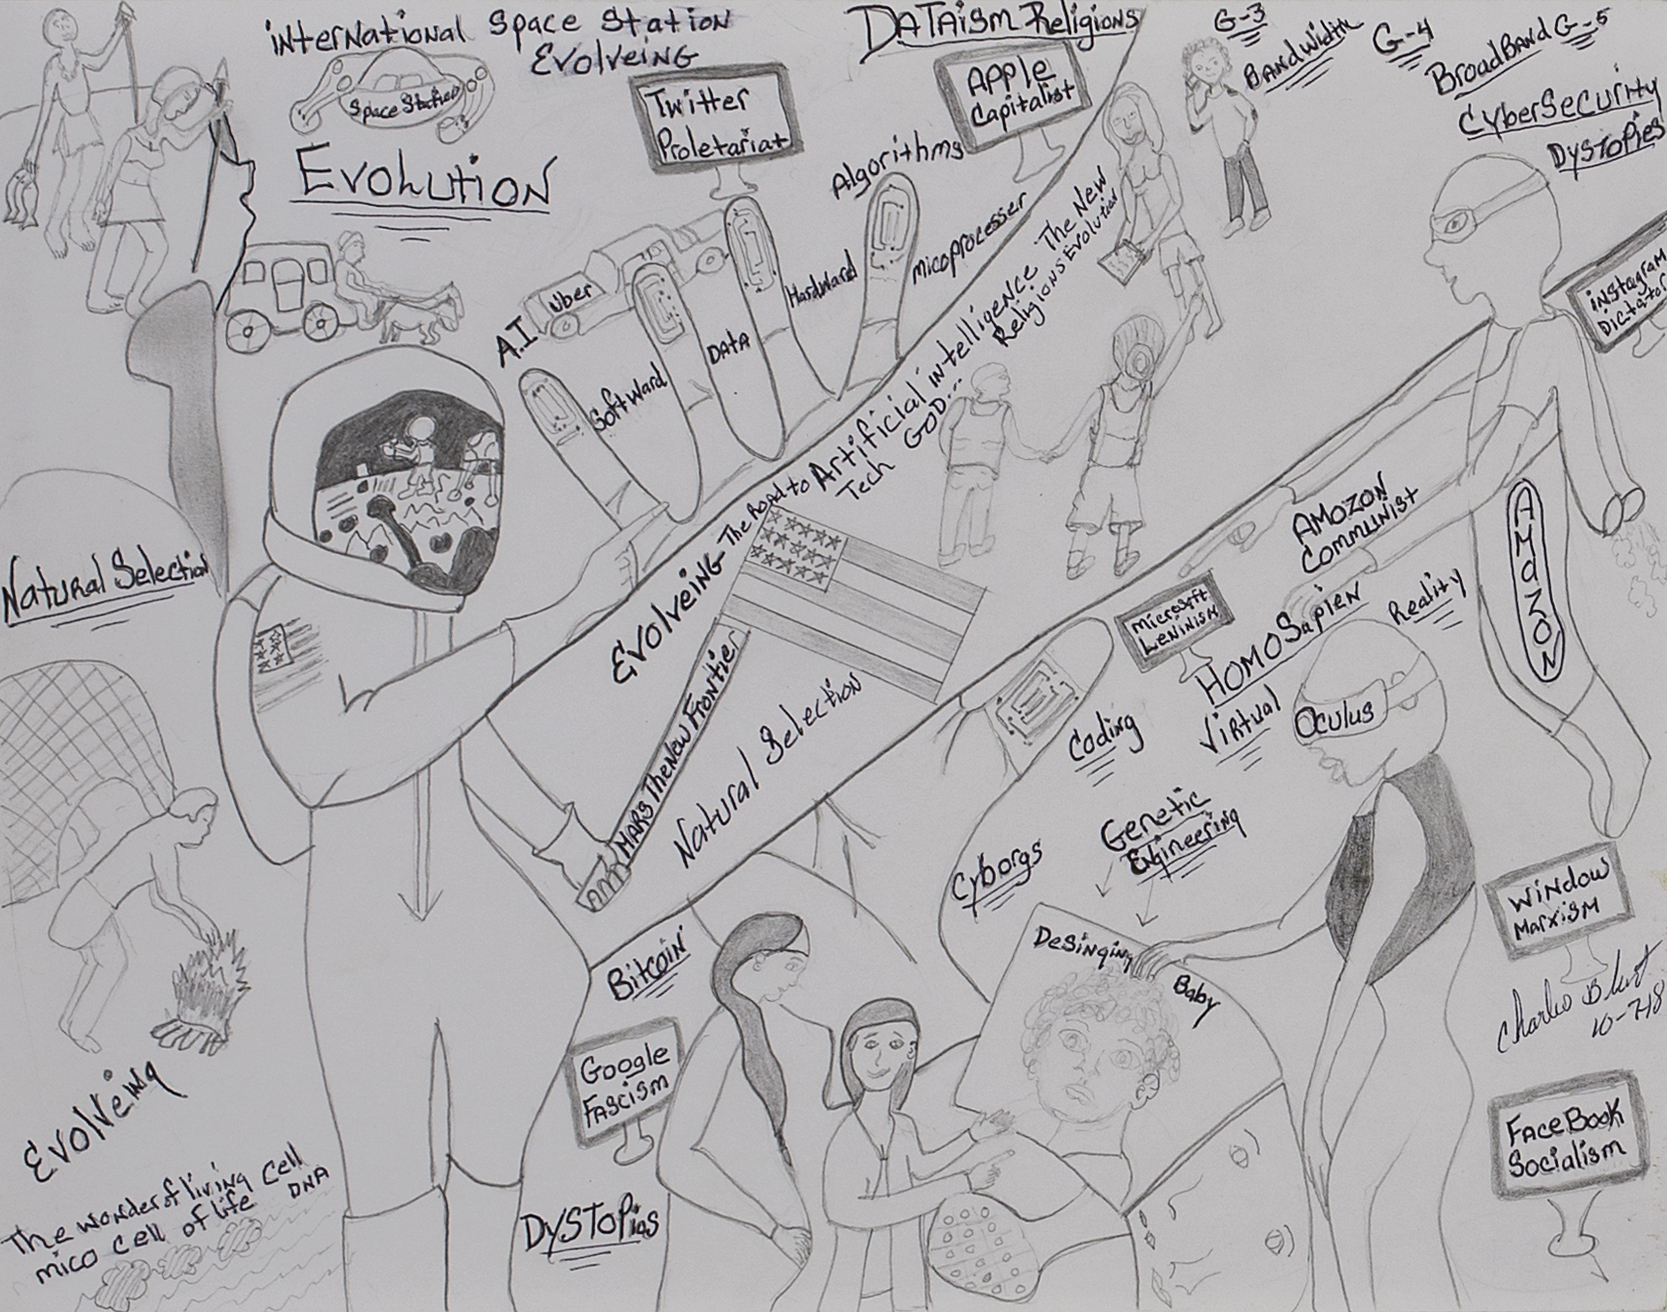 International Space Station
Evolveing
Space Station
Evolution
DATAism Religions
Twitter
Proletariat
APPle
Capitalist
Algorithms
G-3
BANDWidth
G-4
BroadBand G-5
CyberSecurity
DYSTOPies
instagram
Dictator
A.I
Uber
Softward
DATA
Hardward
Micoprocesser
Evolveing The Road to Artificial intelligence The New
Religions Evolution
Tech GOD...
Natural Selection
MARS The New Frontier
Natural Selection
AMOZON
Communist
AMaZON
Microsoft
Leninism
HOMO Sapien
Virtual
Reality
Oculus
Coding
Cyborgs
Genetic
Engineering
Desinging
Baby
Window
Marxism
10-7-18
FaceBook
Socialism
Bitcoin
Google
Fascism
DYSTOPias
Evolveing
The wonder of living Cell
mico cell of life DNA